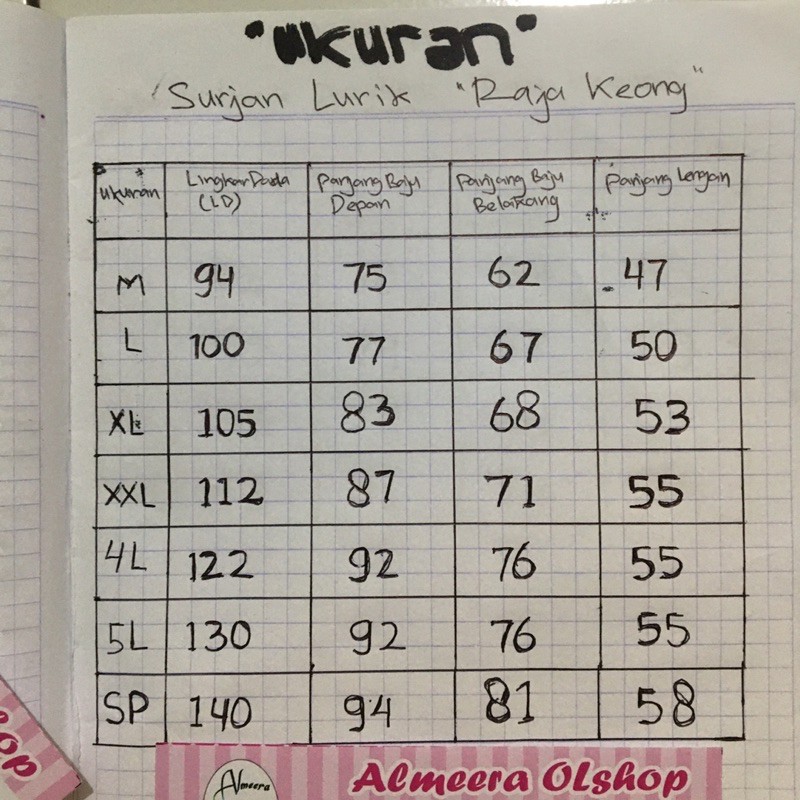 "ukuran"
Surjan Lurik "Raja Keong"
ukuran Lingkar Dada (LD) Panjang Baju Depan Panjang Baju Belakang Panjang Lengan
M 94 75 62 47
L 100 77 67 50
XL 105 83 68 53
XXL 112 87 71 55
4L 122 92 76 55
5L 130 92 76 55
SP 140 94 81 58
Almeera Almeera OLshop
op